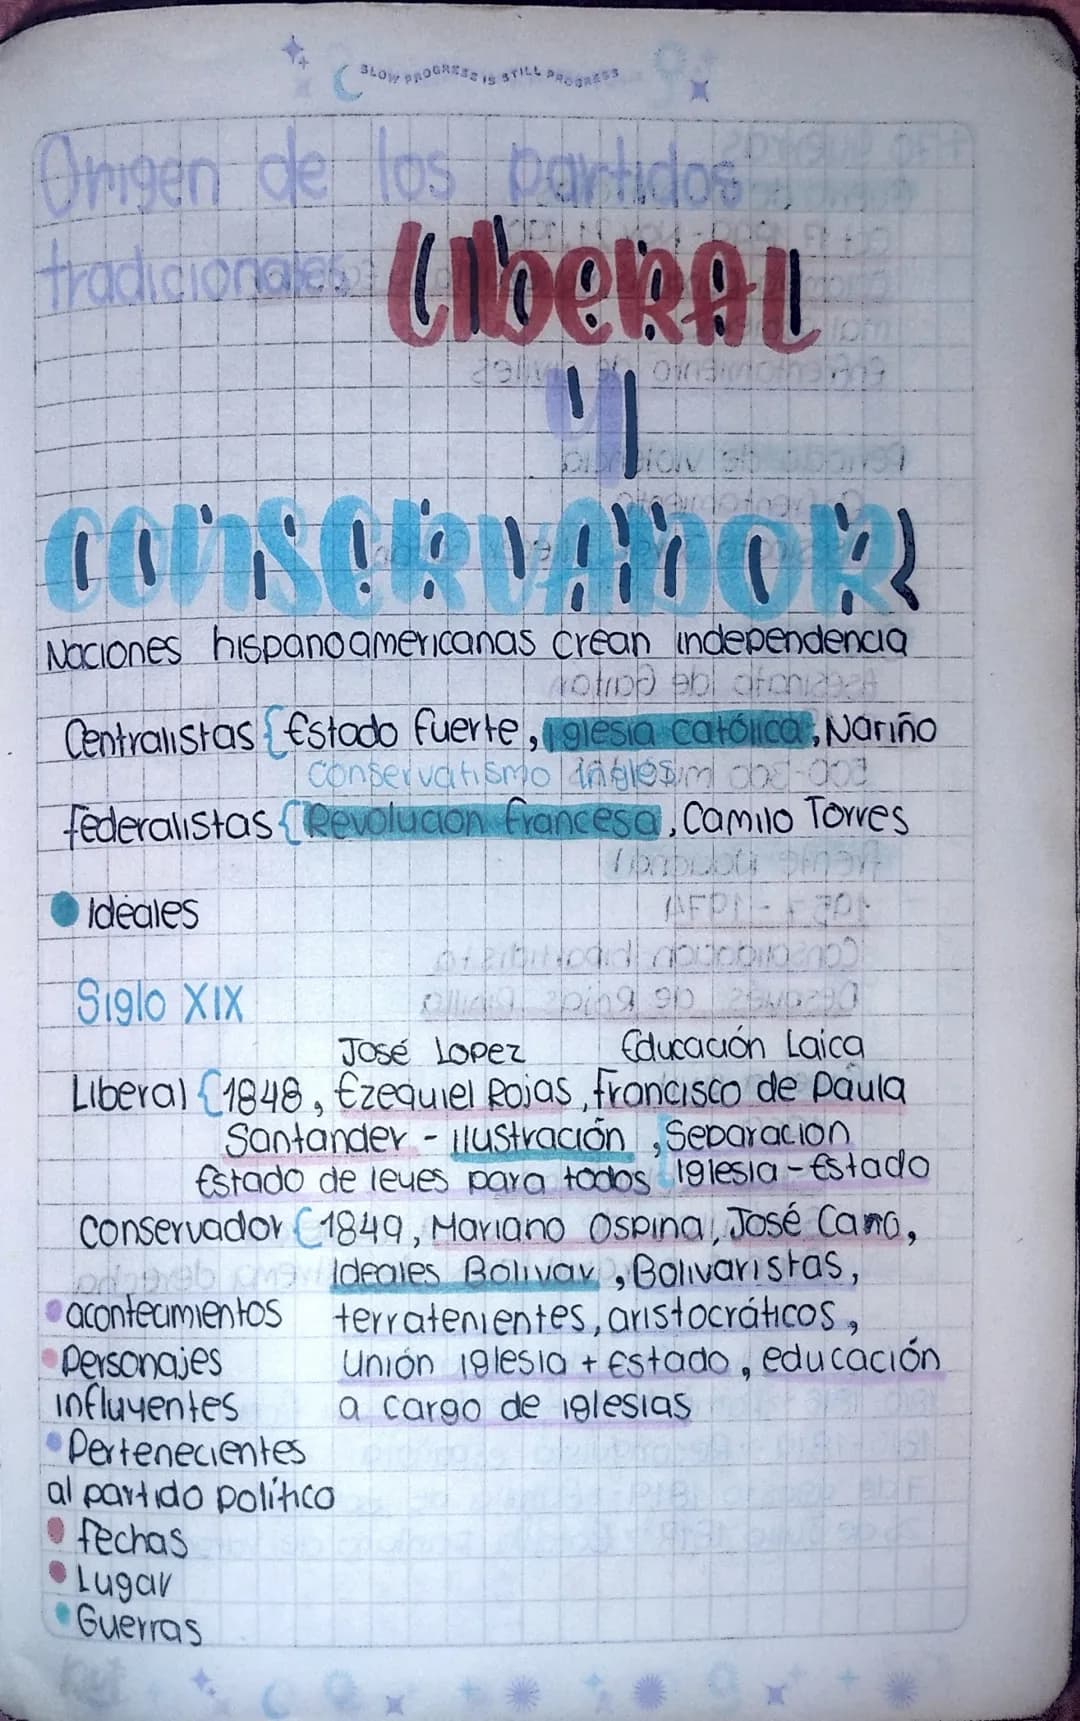 SLOW PROGRESS IS STILL PROGRESS
Origen de los partidos
tradicionales LIBERAL
Y
CONSERVADOR
Naciones hispanoamericanas crean independencia
Centralistas { Estado fuerte, Iglesia católica, Nariño
conservatismo inglés
federalistas { Revolucion francesa, Camilo Torres
Ideales
Siglo XIX
José Lopez Educación Laica
Liberal { 1848, Ezequiel Rojas, francisco de Paula
Santander - ilustración, Separacion
Estado de leyes para todos Iglesia - Estado
conservador { 1849, Mariano Ospina, José Caro,
Ideales Bolivar, Bolivaristas,
acontecimientos terratenientes, aristocráticos,
Personajes Unión iglesia + Estado, educación
influyentes a cargo de iglesias
Pertenecientes
al partido político
fechas
Lugar
Guerras